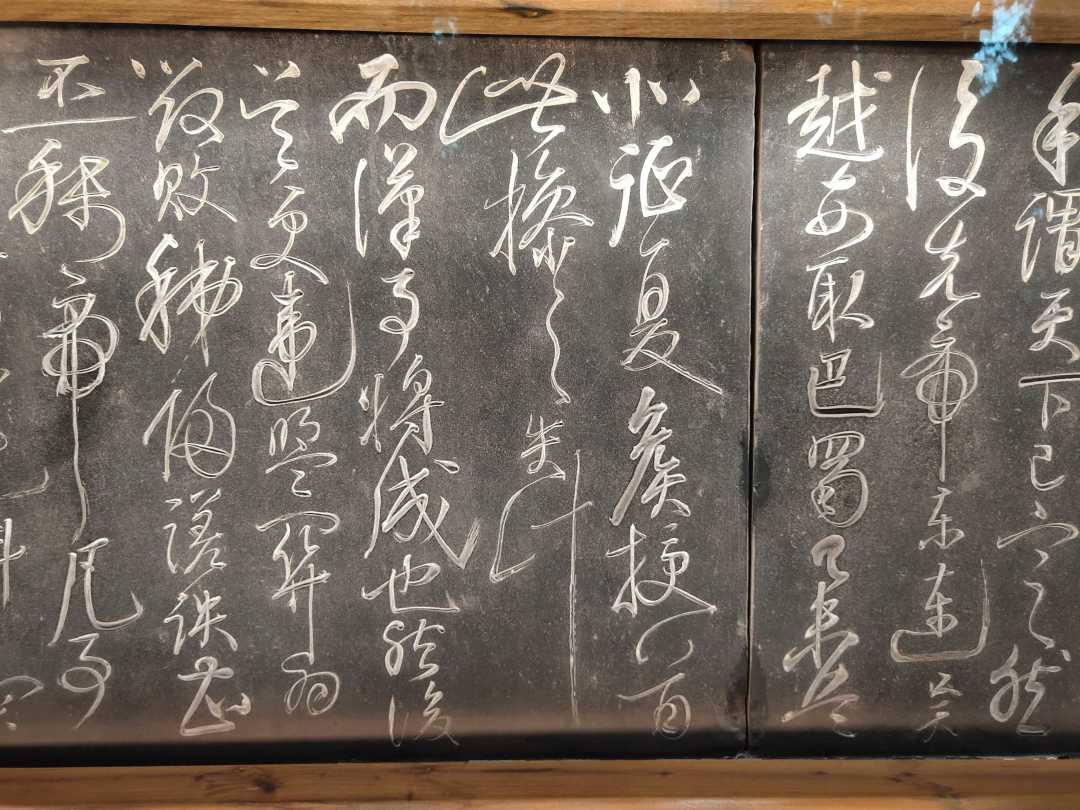 手謂天下已定然
後先帝東連吳
越西取巴蜀舉兵
北征夏侯授首
此操之失計
而漢事將成也然後
吳更違盟關羽
毀敗秭歸蹉跌曹
丕稱帝凡事